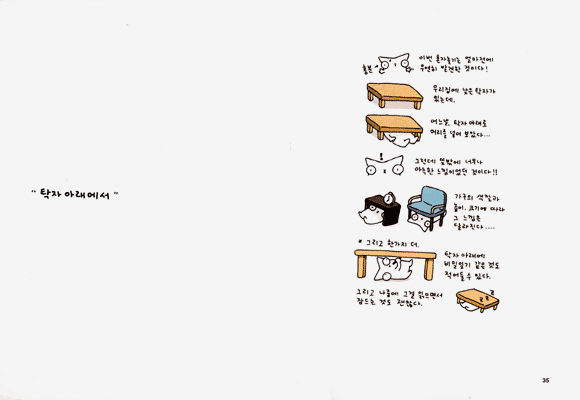 " 탁자 아래에서 "
흥분
이번 혼자놀기는 얼마전에
우연히 발견한 것이다!
우리집에 낮은 탁자가
있는데,
어느날, 탁자 아래로
머리를 넣어 보았다...
그런데 뜻밖에 너무나
아늑한 느낌이었던 것이다!!
가구의 색깔과
높이, 크기에 따라
그 느낌은
달라진다....
* 그리고 한가지 더.
탁자 아래에
비밀일기 같은 것도
적어둘 수 있다.
그리고 나중에 그걸 읽으면서
잠드는 것도 괜찮다.
z z z
35